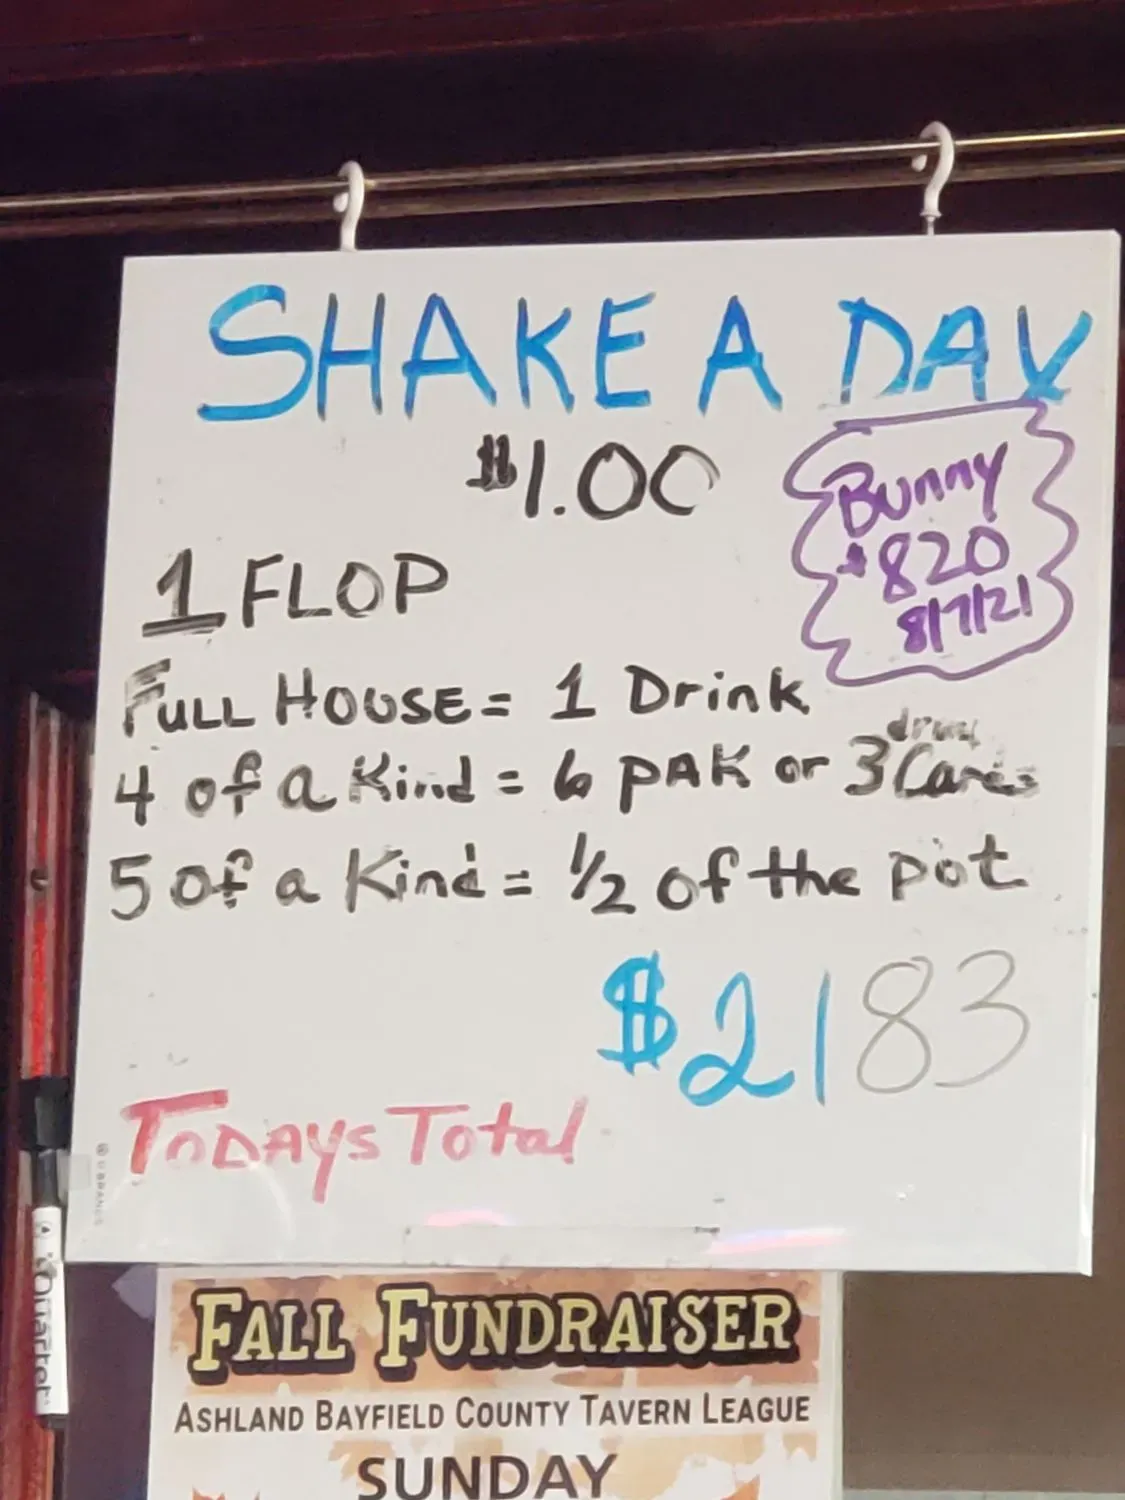 SHAKE A DAY
$1.00
Bunny
$820
8/7/21
1 FLOP
FULL HOUSE = 1 Drink
4 of a Kind = 6 PAK or 3
5 of a Kind = 1/2 of the pot
$2183
TODAYS Total
Quartet
FALL FUNDRAISER
ASHLAND BAYFIELD COUNTY TAVERN LEAGUE
SUNDAY